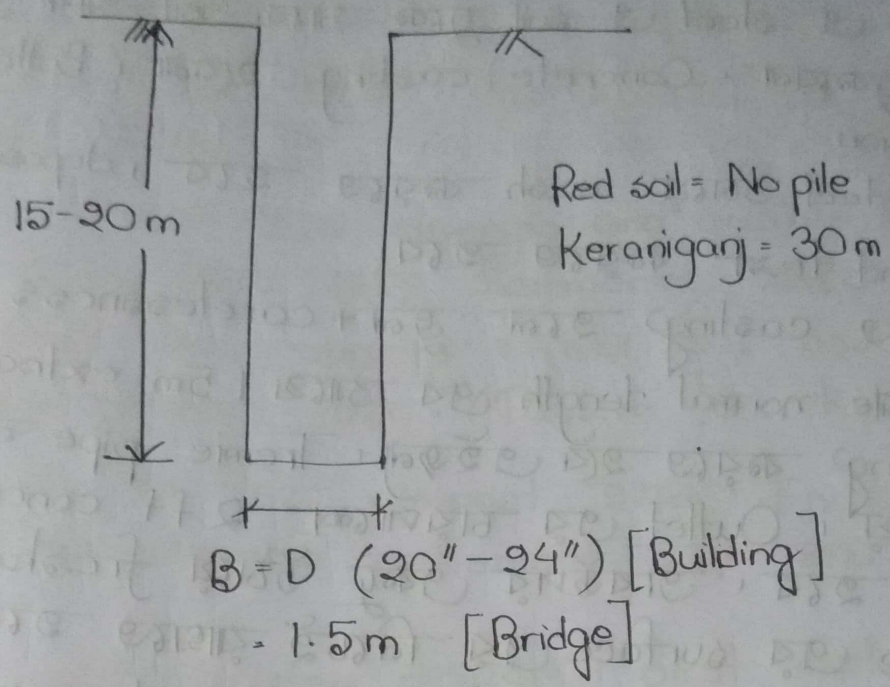 15-20m
Red soil = No pile
Keraniganj = 30m
B = D (20" - 24") [Building]
= 1.5m [Bridge]